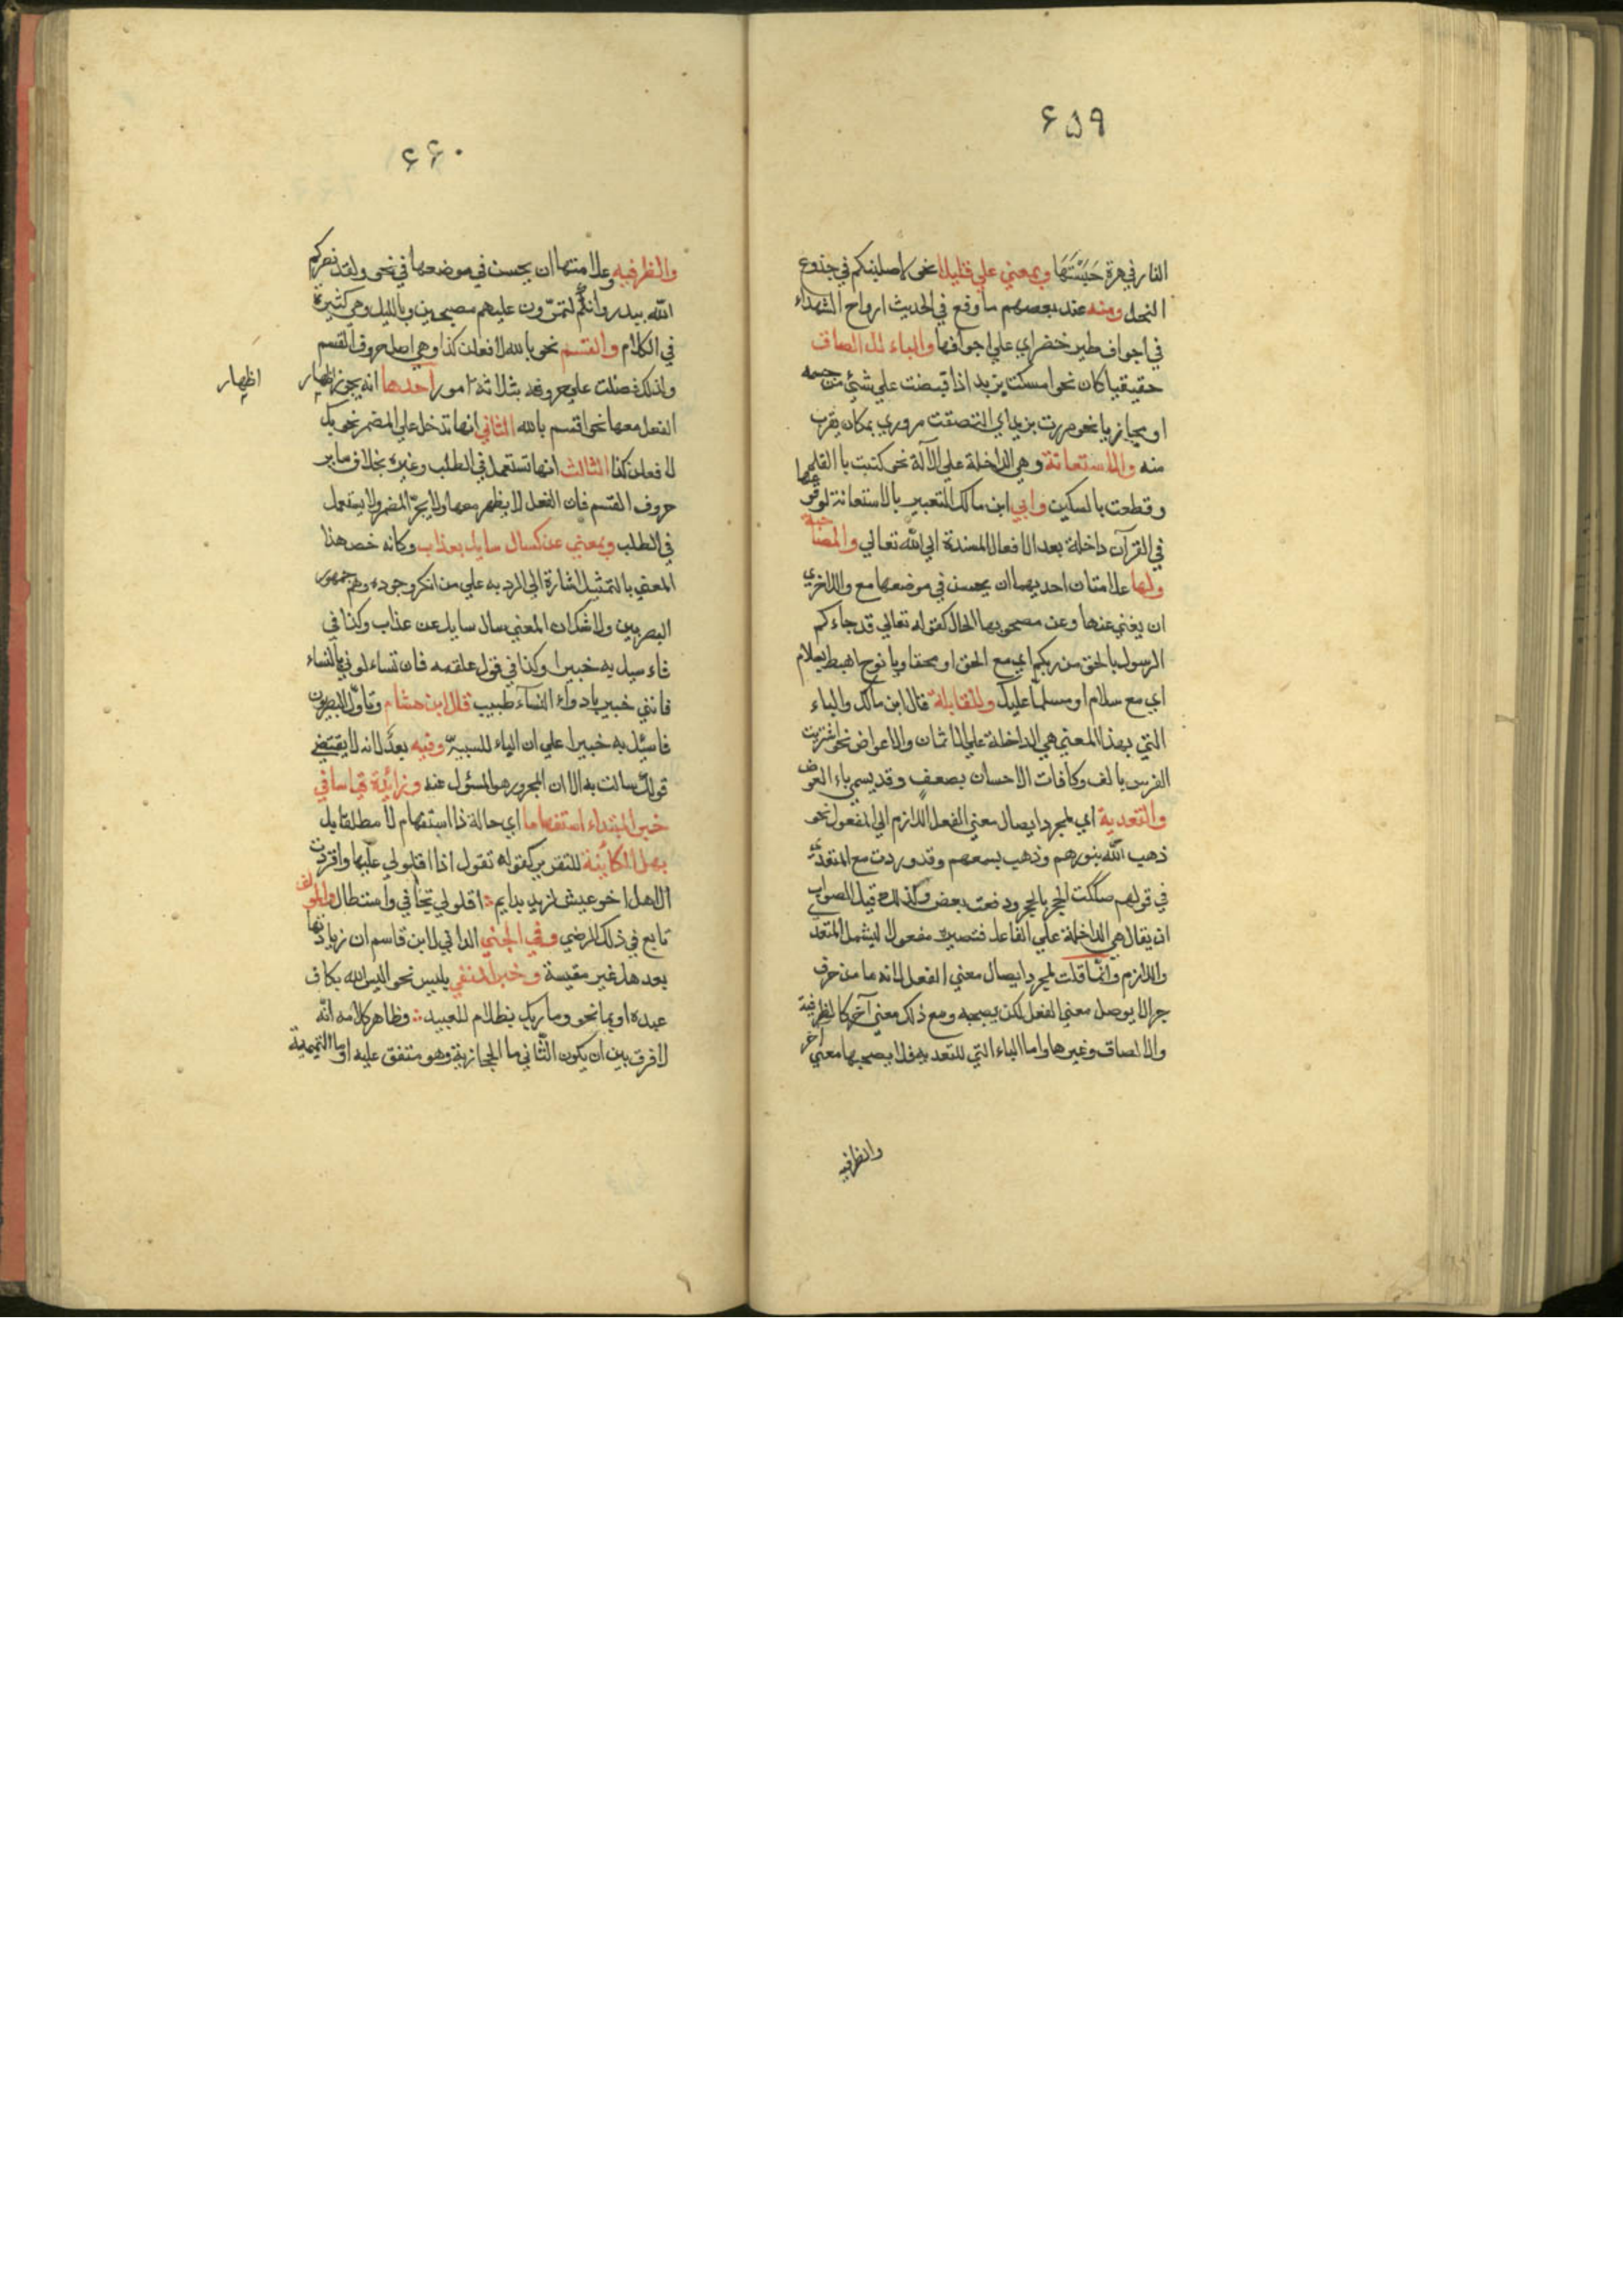 ۶۵۹
النار في هرة حَبَسَتْهَا وبمعني علي قليلا نحو لاصلبنكم في جذوع
النخل ومنه عند بعضهم ما وقع في الحديث ارواح الشهداء
في اجواف طير خضر اي علي اجوافها والباء للالصاق
حقيقيا كان نحو امسكت بزيد اذا قبضت علي شئ من جسمه
او مجازيا نحو مررت بزيد اي التصقت مروري بمكان يقرب
منه والاستعانة وهي الداخلة علي الآلة نحو كتبت بالقلم
وقطعت بالسكين وابي ابن مالك التعبير بالاستعانة لوقوعها
في القرآن داخلة بعد الافعال المسندة الي الله تعالي والمصاحبة
ولها علامتان احديهما ان يحسن في موضعها مع والاخري
ان يغني عنها وعن مصحوبها الحال كقوله تعالي قد جاءكم
الرسول بالحق من ربكم اي مع الحق او محقا ويا نوح اهبط بسلام
اي مع سلام او مسلما عليك وللمقابلة قال ابن مالك والباء
التي بهذا المعني هي الداخلة علي الاثمان والاعواض نحو اشتريت
الفرس بالف وكافات الاحسان بضعفٍ وقد يسمي باء العوض
والتعدية اي لمجرد ايصال معني الفعل اللازم الي المفعول نحو
ذهب الله بنورهم وذهب بسمعهم وقد وردت مع المتعدي
في قولهم صككت الحجر بالحجر ودفعت بعض وكذلك قيل الصواب
ان يقال هي الداخلة علي الفاعل فتصيره مفعولا ليشمل المتعد
واللازم وانّما قلت لمجرد ايصال معني الفعل لانه ما من حرف
جر الا يوصل معني الفعل لكن يصحبه ومع ذلك معني آخر كالظرفية
والالصاق وغيرها واما الباء التي للتعديه فلا يصحبها معني آخر
والظرفيه
۶۶۰
والظرفيه وعلامتها ان يحسن في موضعها في نحو ولقد نصركم
الله ببدر وانكم لتمرّون عليهم مصبحين وبالليل وهي كثيرة
في الكلام والقسم نحو بالله لافعلن كذا وهي اصل حروف القسم
ولذلك فضلت علي حروفه بثلاثة امور احدها انه يجوز اظهار
اظهار
الفعل معها نحو اقسم بالله الثاني انها تدخل علي المضمر نحو بك
لافعلن كذا الثالث انها تستعمل في الطلب وغيره بخلاف ساير
حروف القسم فان الفعل لا يظهر معها ولا يجرّ المضمر ولا يستعمل
في الطلب وبمعني عن كسال سايل بعذاب وكانه خص هذا
المعني بالتمثيل اشارة الي الرد به علي من انكر وجوده وهم جمهور
البصريين ولا شك ان المعني سال سايل عن عذاب وكذا في
فاءسيل به خبيرا وكذا في قول علقمه فان تساءلوني بالنساء
فانني خبير بادواء النسآء طبيب قال ابن هشام وتاوّل البصريون
فاسئل به خبيرا علي ان الباء للسببيّة وفيه بعدٌ لانه لا يقتضي
قولك سالت به الا ان المجرور هو المسئول عنه وزائدة قياسا في
خبر المبتداء استفهاما اي حالة ذا استفهام لا مطلقا بل
بهل الكائنة للتقرير كقوله تقول اذا اقلولي عليها واقردت
الا هل اخو عيش لذيذ بدايم ؞ اقلولي تجافي واستطال والمولف
تابع في ذلك الرضي وفي الجني الداني لابن قاسم ان زيادتها
بعد هل غير مقيسة وخبر المنفي بليس نحو اليس الله بكاف
عبده او بما نحو وما ربك بظلام للعبيد ؞ وظاهر كلامه انّه
لا فرق بين ان يكون الثّاني ما الحجازية وهو متفق عليه او ما التميمية